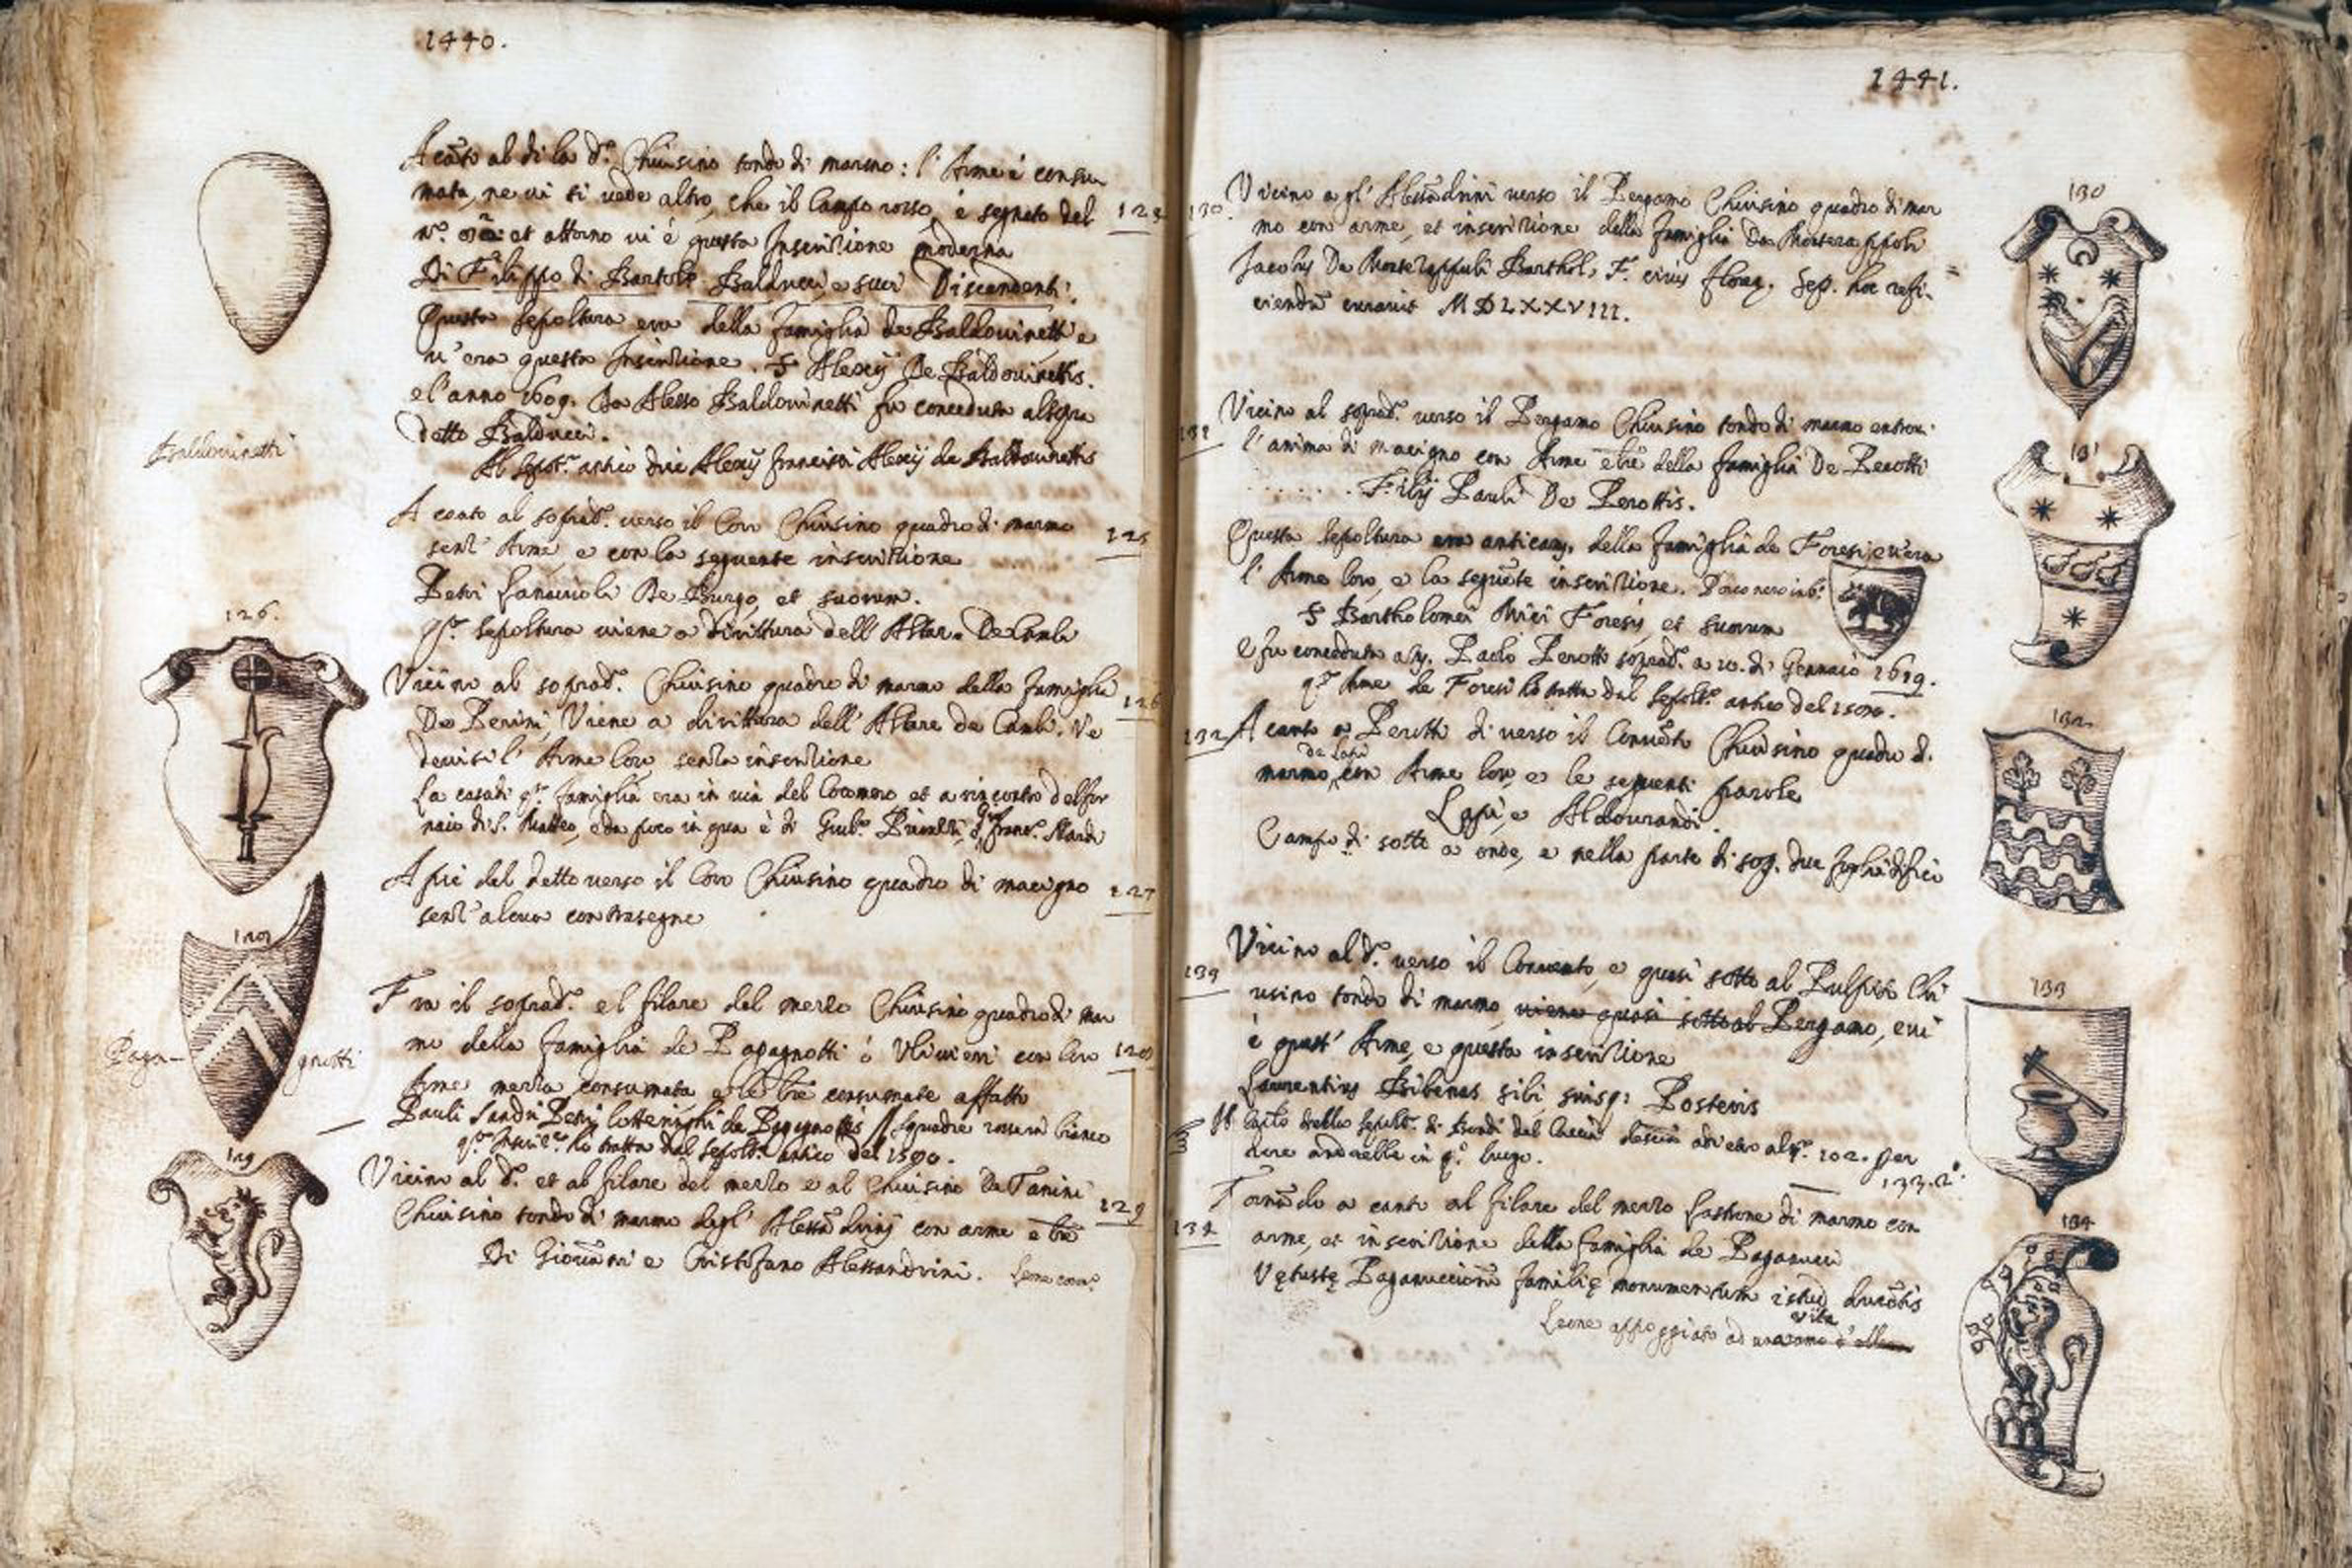 1440.
A cāto al di la d.º Chiusino tondo di marmo: l'Arme è consu
mata, ne vi si vede altro, che il Campo rosso, è segnato del
n.º et attorno vi è questa Inscrizione moderna
Di Filippo di Bartolº Balducci, e suoi Discendenti.
Questa sepoltura era della famiglia de Baldovinetti e
v'era questa Inscrizione. S Alexij De Baldovinettis.
e l'anno 1609. Da Alesso Baldovinetti fu conceduta
detto Balducci.
Baldovinetti
Alexij francisci Alexij de Baldovinettis
A canto al soprad.º verso il Coro Chiusino quadro di marmo
125
senz'Arme, e con la seguente inscrizione
Petri De Burgo, et suorum.
q.ta sepoltura viene a dirittura dell'Altare De Cambi
126.
Vicino al soprad.º Chiusino quadro di marmo della famiglia
126
De Benini, Viene a dirittura dell'Altare de Cambi. Ve
devisi l'Arme loro senza inscrizione
La casa di q.ta famiglia era in via del Cocomero et a rincontro del for
naio di S. Matteo, e da poco in qua è di
A piè del detto verso il Coro Chiusino quadro di macigno
127
senz'alcun contrasegno
Fra il soprad.º e'l filare del mezzo Chiusino quadro di mar
mo della famiglia de Papagnotti ò Ulivieri con loro
Arme mezza consumata, e lre consumate affatto
Paga- gnotti
Pauli Sandri Petri de Pagagnottis // squadre rosse in bianco
q.ta Inscriz.e hò tratta dal sepolt.º antico del 1590.
129
Vicino al d.º et al filare del mezzo e al Chiusino De Tanini
129
Chiusino tondo di marmo degl'Alessādrinij con arme e lre
Di Giovāni e Cristofano Alessandrini.
1441.
130
130.
Vicino a gl'Alessādrini verso il Bergamo Chiusino quadro di mar
mo con arme, et inscrizione della famiglia Da Monterappoli
Jacobus Da Monterappoli Barthol. F. civis floren. sep. hoc refi-
ciendū curavit MDLXXVIII.
131
131
Vicino al soprad.º verso il Bergamo Chiusino tondo di marmo entrovi
l'anima di macigno con Arme e lre della famiglia De Perotti
. . . . . . Filij Pauli De Perottis.
Questa sepoltura era anticam. della famiglia de Foresi, e v'era
l'Arme loro, e la seguēte inscrizione. Porco nero in b.º
S Bartholomei Foresij et suorum
e fu conceduta a m. Paolo Perotti soprad.º a 10. di Gennaio 1619.
q.ta Arme de Foresi hò tratta dal sepolt.º antico del
132
132
A canto a Perotti di verso il Convēto Chiusino quadro di
de Lapi
marmo, con Arme loro, e le seguenti parole
Lapi, e Aldobrandi.
Campo di sotto a onde, e nella parte di sop.ª due
133
133
Vicino al d.º verso il Convento, e quasi sotto al Pulpito Chi
usino tondo di marmo viene quasi sotto al Bergamo, e vi
è quest'Arme, e questa inscrizione
Laurentius Bibenas sibi suisq: Posteris
Il sepolt.º di Bondi del Caccia 102. per
dove andrebbe in q.º luogo.
133.2º
134
134
Tornādo a canto al filare del mezzo Lastrone di marmo con
arme, et inscrizione della famiglia de Paganucci
Vętustę Paganuccionū familię monumentum istud
vite
Leone appoggiato ad una